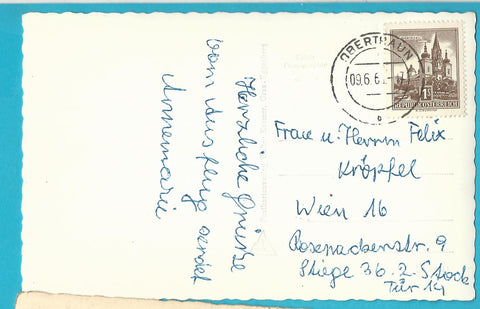 Herzliche Grüße
vom Ausflug sendet
Annemarie
OBERTRAUN
09.6.6
b
REPUBLIK ÖSTERREICH
Frau u. Herrn Felix
Kröpfel
Wien 16
Rosenackerstr. 9
Stiege 36. 2. Stock
Tür 14